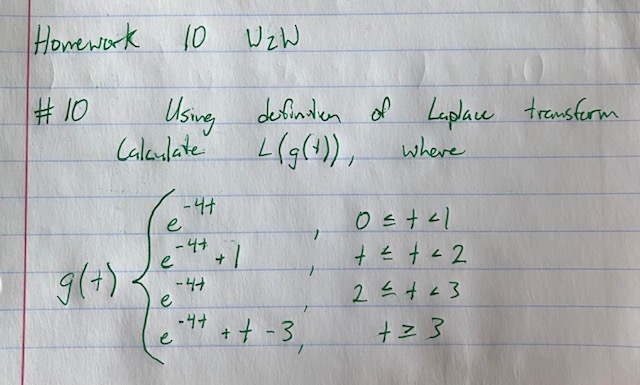 Homework 10 W2W
#10 Using definition of Laplace transform
Calculate L(g(t)), where
g(t) {
e^-4t , 0 ≤ t < 1
e^-4t + 1 , t ≤ t < 2
e^-4t , 2 ≤ t < 3
e^-4t + t - 3, t ≥ 3